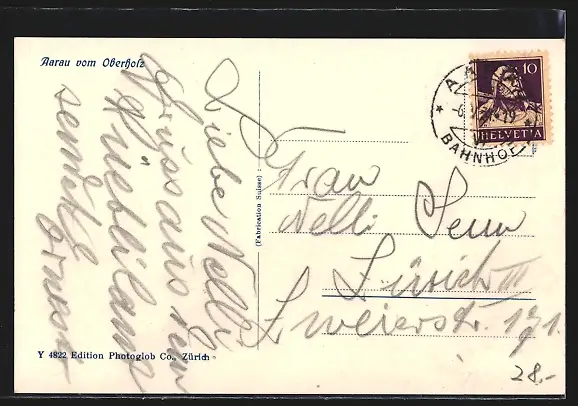 Aarau vom Oberholz
Liebe Nelly
Gruss aus dem
Rüebliland
sendet
(Fabrication Suisse)
Y 4822 Edition Photoglob Co., Zürich
10
HELVETIA
BAHNHOF
Frau
Nelli Senn
Zürich III
Zweierstr. 171.
28.-